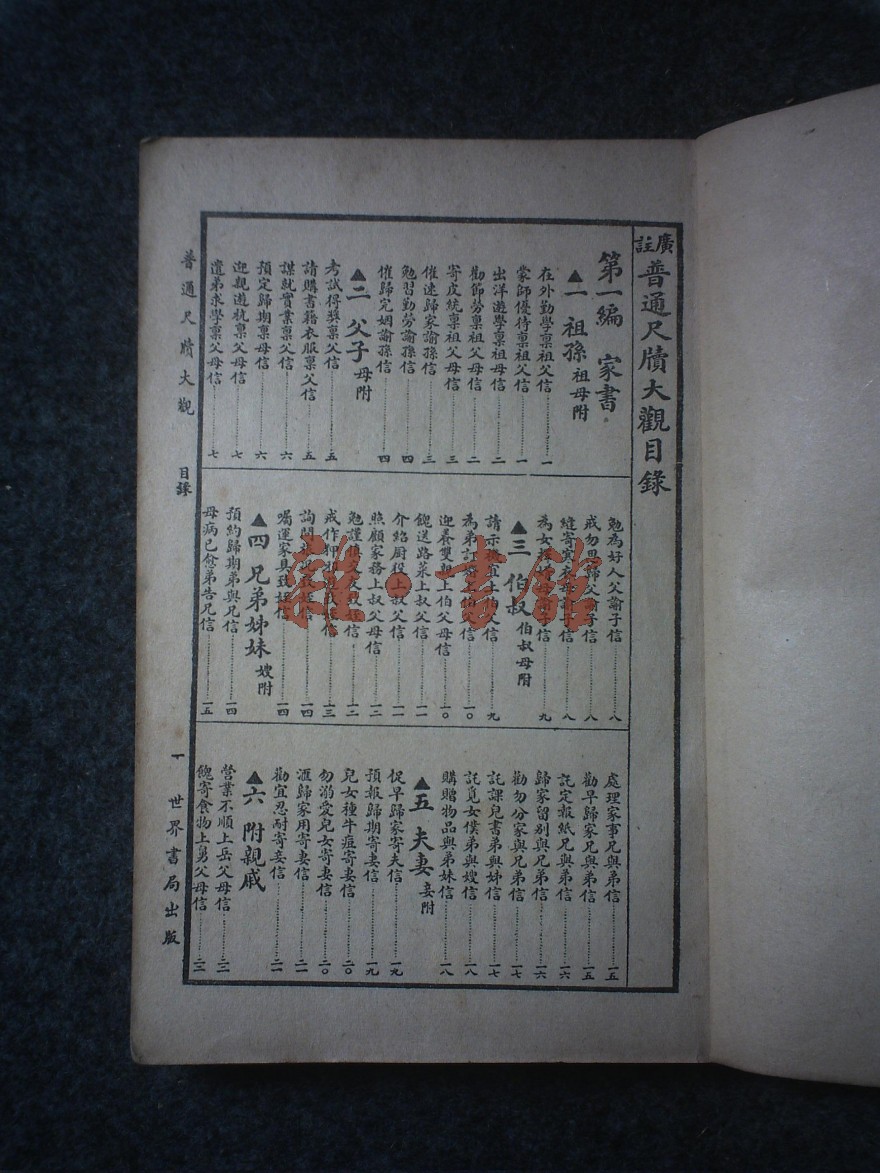 廣註普通尺牘大觀目錄
第一編 家書
▲一 祖孫 祖母附
在外勤學稟祖父信 一
蒙師優待稟祖父信 一
出洋遊學稟祖母信 二
勸節勞稟祖父母信 二
寄皮統稟祖父母信 三
催速歸家諭孫信 三
勉習勤勞諭孫信 四
催歸完姻諭孫信 四
▲二 父子 母附
考試得獎稟父信 五
請購書籍衣服稟父信 五
謀就實業稟父信 六
預定歸期稟母信 六
迎親遊杭稟父母信 七
遣弟求學稟父母信 七
勉為好人父諭子信 八
戒勿思歸父諭子信 八
縫寄寒衣母諭子信 八
為女擇 母諭子信 九
▲三 伯叔 伯叔母附
請示 宜上伯父信 九
為弟訂婚上伯父信 一〇
迎養雙親上伯父母信 一〇
餽送路菜上叔父信 一一
介紹廚役上叔父信 一一
照顧家務上叔父母信 一二
勉謹慎 信 一二
戒作狎 信 一三
詢問 信 一四
囑運家具致姪信 一四
▲四 兄弟姊妹 嫂附
預約歸期弟與兄信 一四
母病已愈弟告兄信 一五
處理家事兄與弟信 一五
勸早歸家兄與弟信 一五
託定報紙兄與弟信 一六
歸家留別與兄弟信 一六
勸勿分家與兄弟信 一七
託課兒書弟與姊信 一七
託覓女僕弟與嫂信 一八
購贈物品與弟妹信 一八
▲五 夫妻 妾附
促早歸家寄夫信 一九
預報歸期寄妻信 一九
兒女種牛痘寄妻信 二〇
勿溺愛兒女寄妻信 二〇
滙歸家用寄妻信 二一
勸宜忍耐寄妾信 二一
▲六 附親戚
營業不順上岳父母信 二二
餽寄食物上舅父母信 二二
普通尺牘大觀 目錄 一 世界書局出版
雜·書館